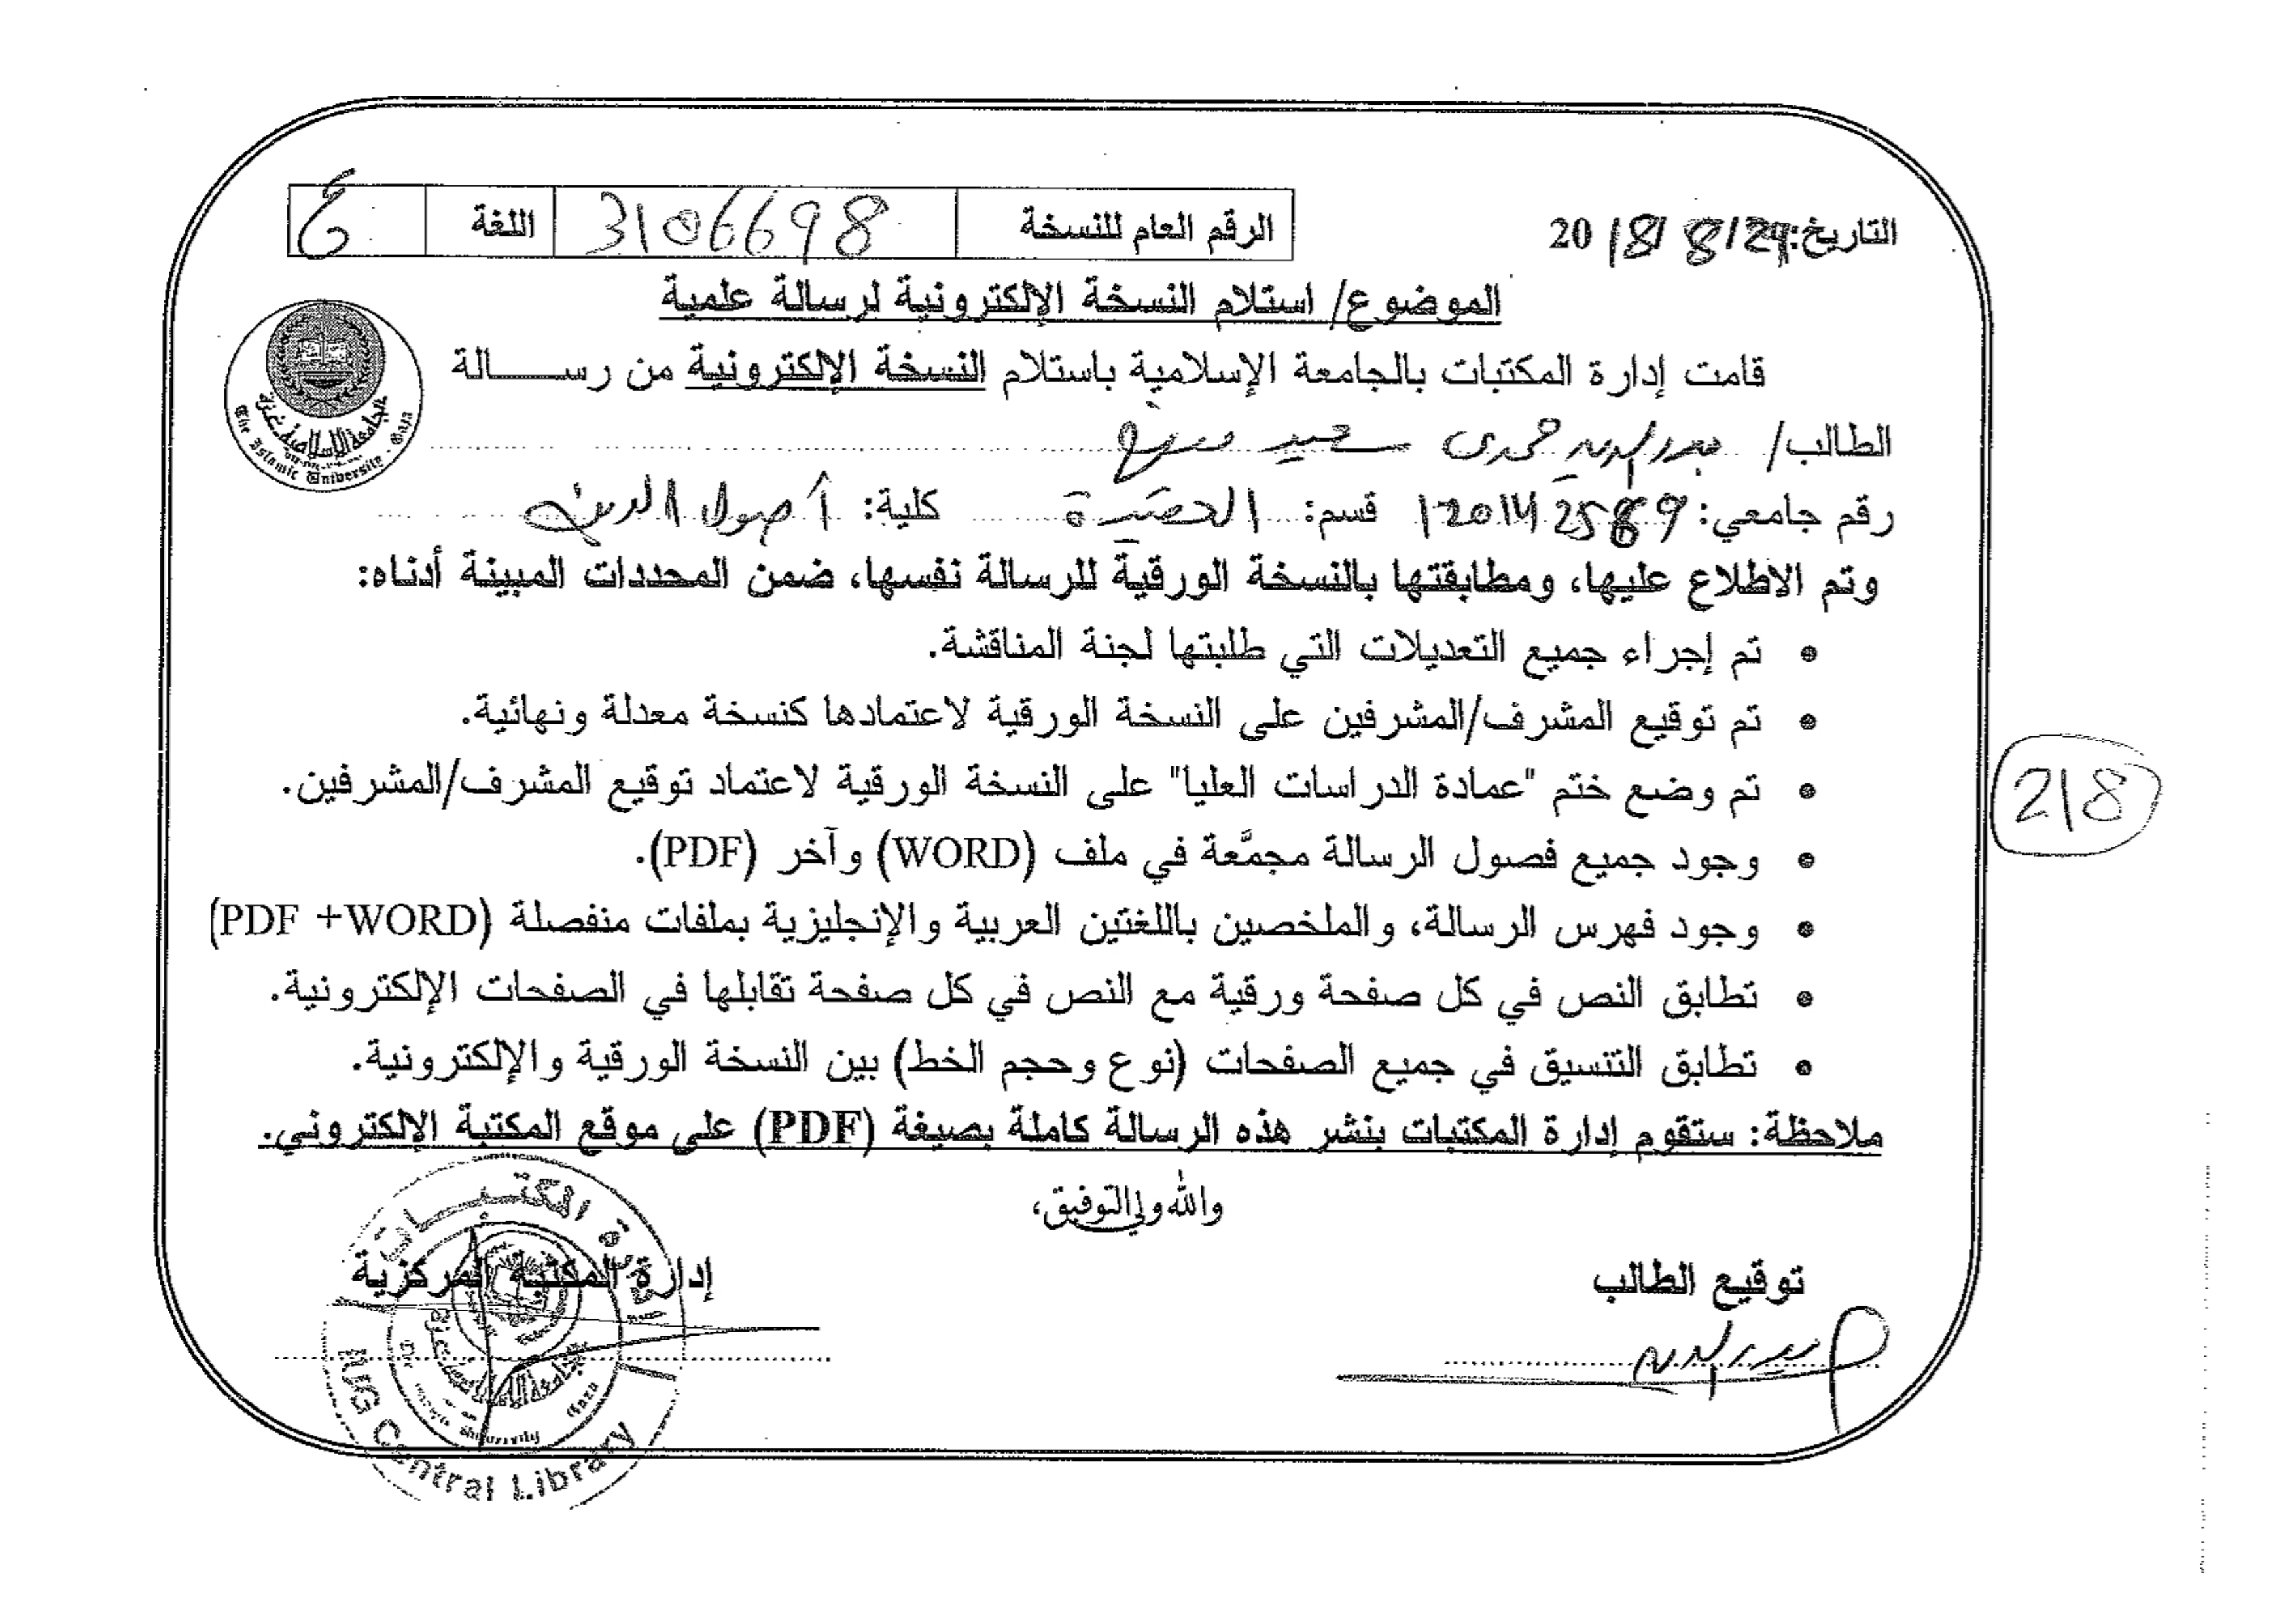 التاريخ: 29/ 8/ 2018
الرقم العام للنسخة 3106698 اللغة ع
الموضوع/ استلام النسخة الإلكترونية لرسالة علمية
قامت إدارة المكتبات بالجامعة الإسلامية باستلام النسخة الإلكترونية من رســـالة
الطالب/ بدر الدين حمدي سعيد
رقم جامعي: قسم: العقيدة كلية: أصول الدين
وتم الاطلاع عليها، ومطابقتها بالنسخة الورقية للرسالة نفسها، ضمن المحددات المبينة أدناه:
• تم إجراء جميع التعديلات التي طلبتها لجنة المناقشة.
• تم توقيع المشرف/المشرفين على النسخة الورقية لاعتمادها كنسخة معدلة ونهائية.
• تم وضع ختم "عمادة الدراسات العليا" على النسخة الورقية لاعتماد توقيع المشرف/المشرفين.
• وجود جميع فصول الرسالة مجمَّعة في ملف (WORD) وآخر (PDF).
• وجود فهرس الرسالة، والملخصين باللغتين العربية والإنجليزية بملفات منفصلة (PDF +WORD)
• تطابق النص في كل صفحة ورقية مع النص في كل صفحة تقابلها في الصفحات الإلكترونية.
• تطابق التنسيق في جميع الصفحات (نوع وحجم الخط) بين النسخة الورقية والإلكترونية.
ملاحظة: ستقوم إدارة المكتبات بنشر هذه الرسالة كاملة بصيغة (PDF) على موقع المكتبة الإلكتروني.
والله ولي التوفيق،
توقيع الطالب
إدارة المكتبة المركزية
بدر الدين
218
الجامعة الإسلامية غزة
The Islamic University - Gaza
IUG Central Library